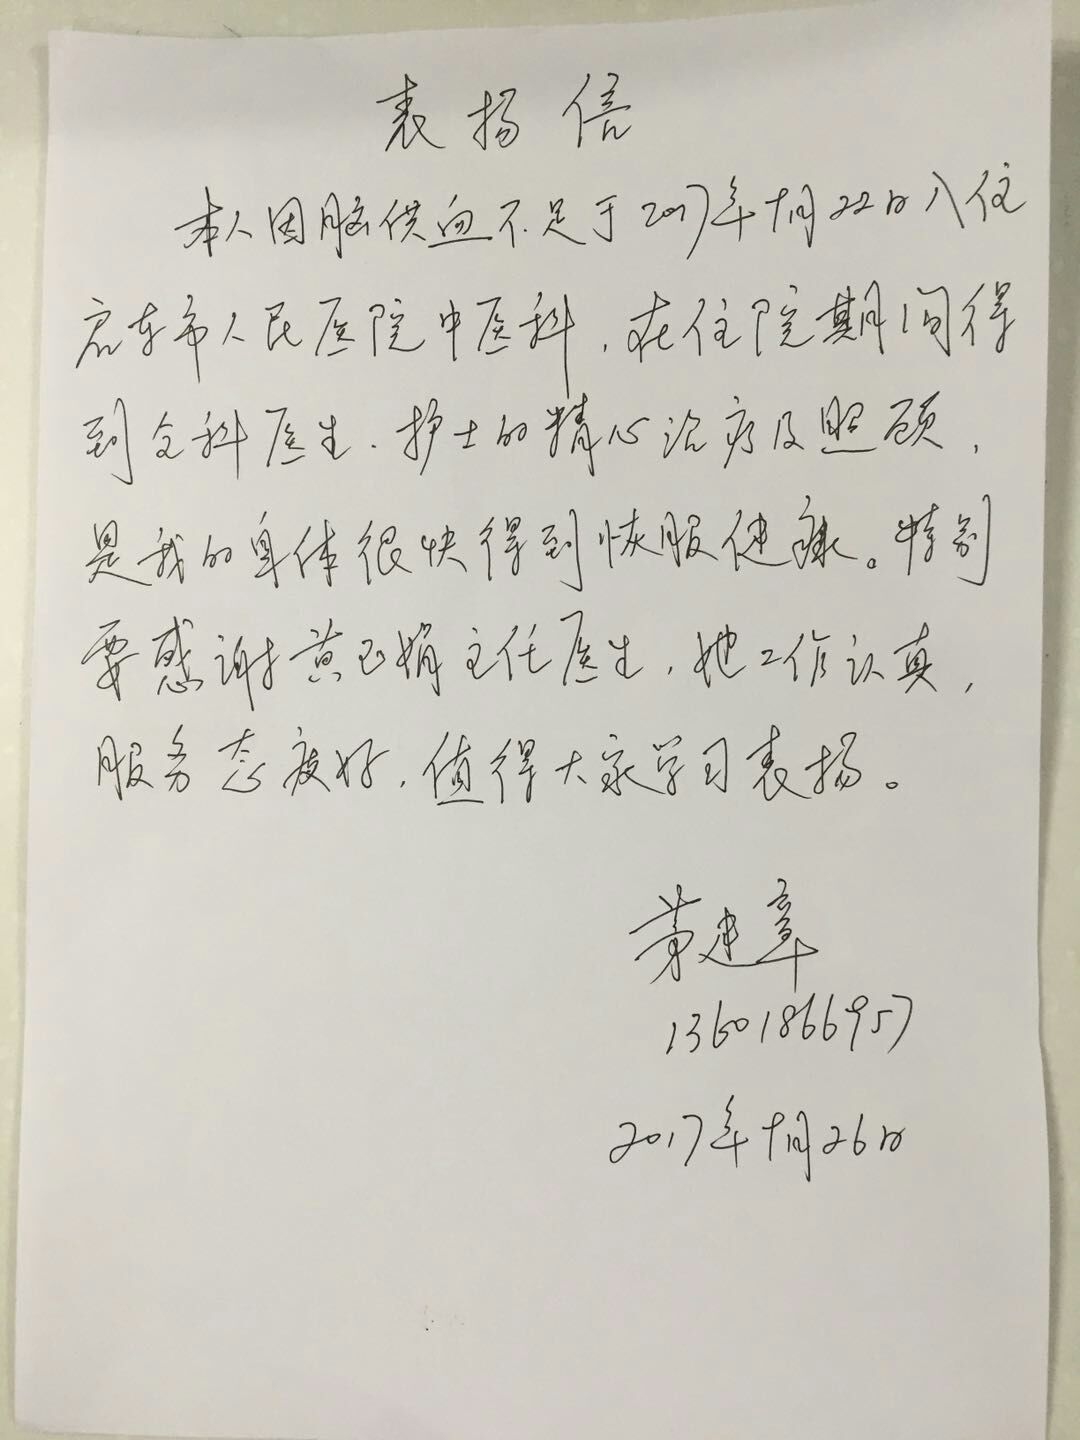 表扬信
本人因脑供血不足于2017年十月22日入住
启东市人民医院中医科，在住院期间得
到全科医生、护士的精心治疗及照顾，
是我的身体很快得到恢服健康。特别
要感谢黄玉娟主任医生，她工作认真，
服务态度好，值得大家学习表扬。
黄建章
13601866957
2017年十月26日